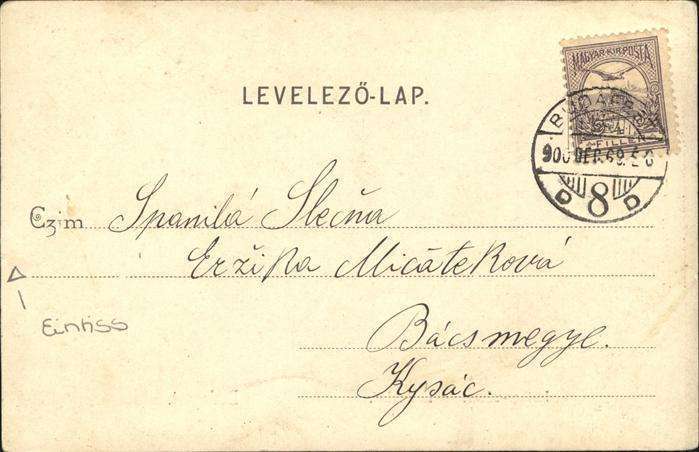 LEVELEZŐ-LAP.
MAGYAR KIR. POSTA
BUDAPEST
900 DEC.
D 8 D
Czim Spanilá Slečňa
Eržika Mičáteková
Bácsmegye.
Kysác.
Einriss